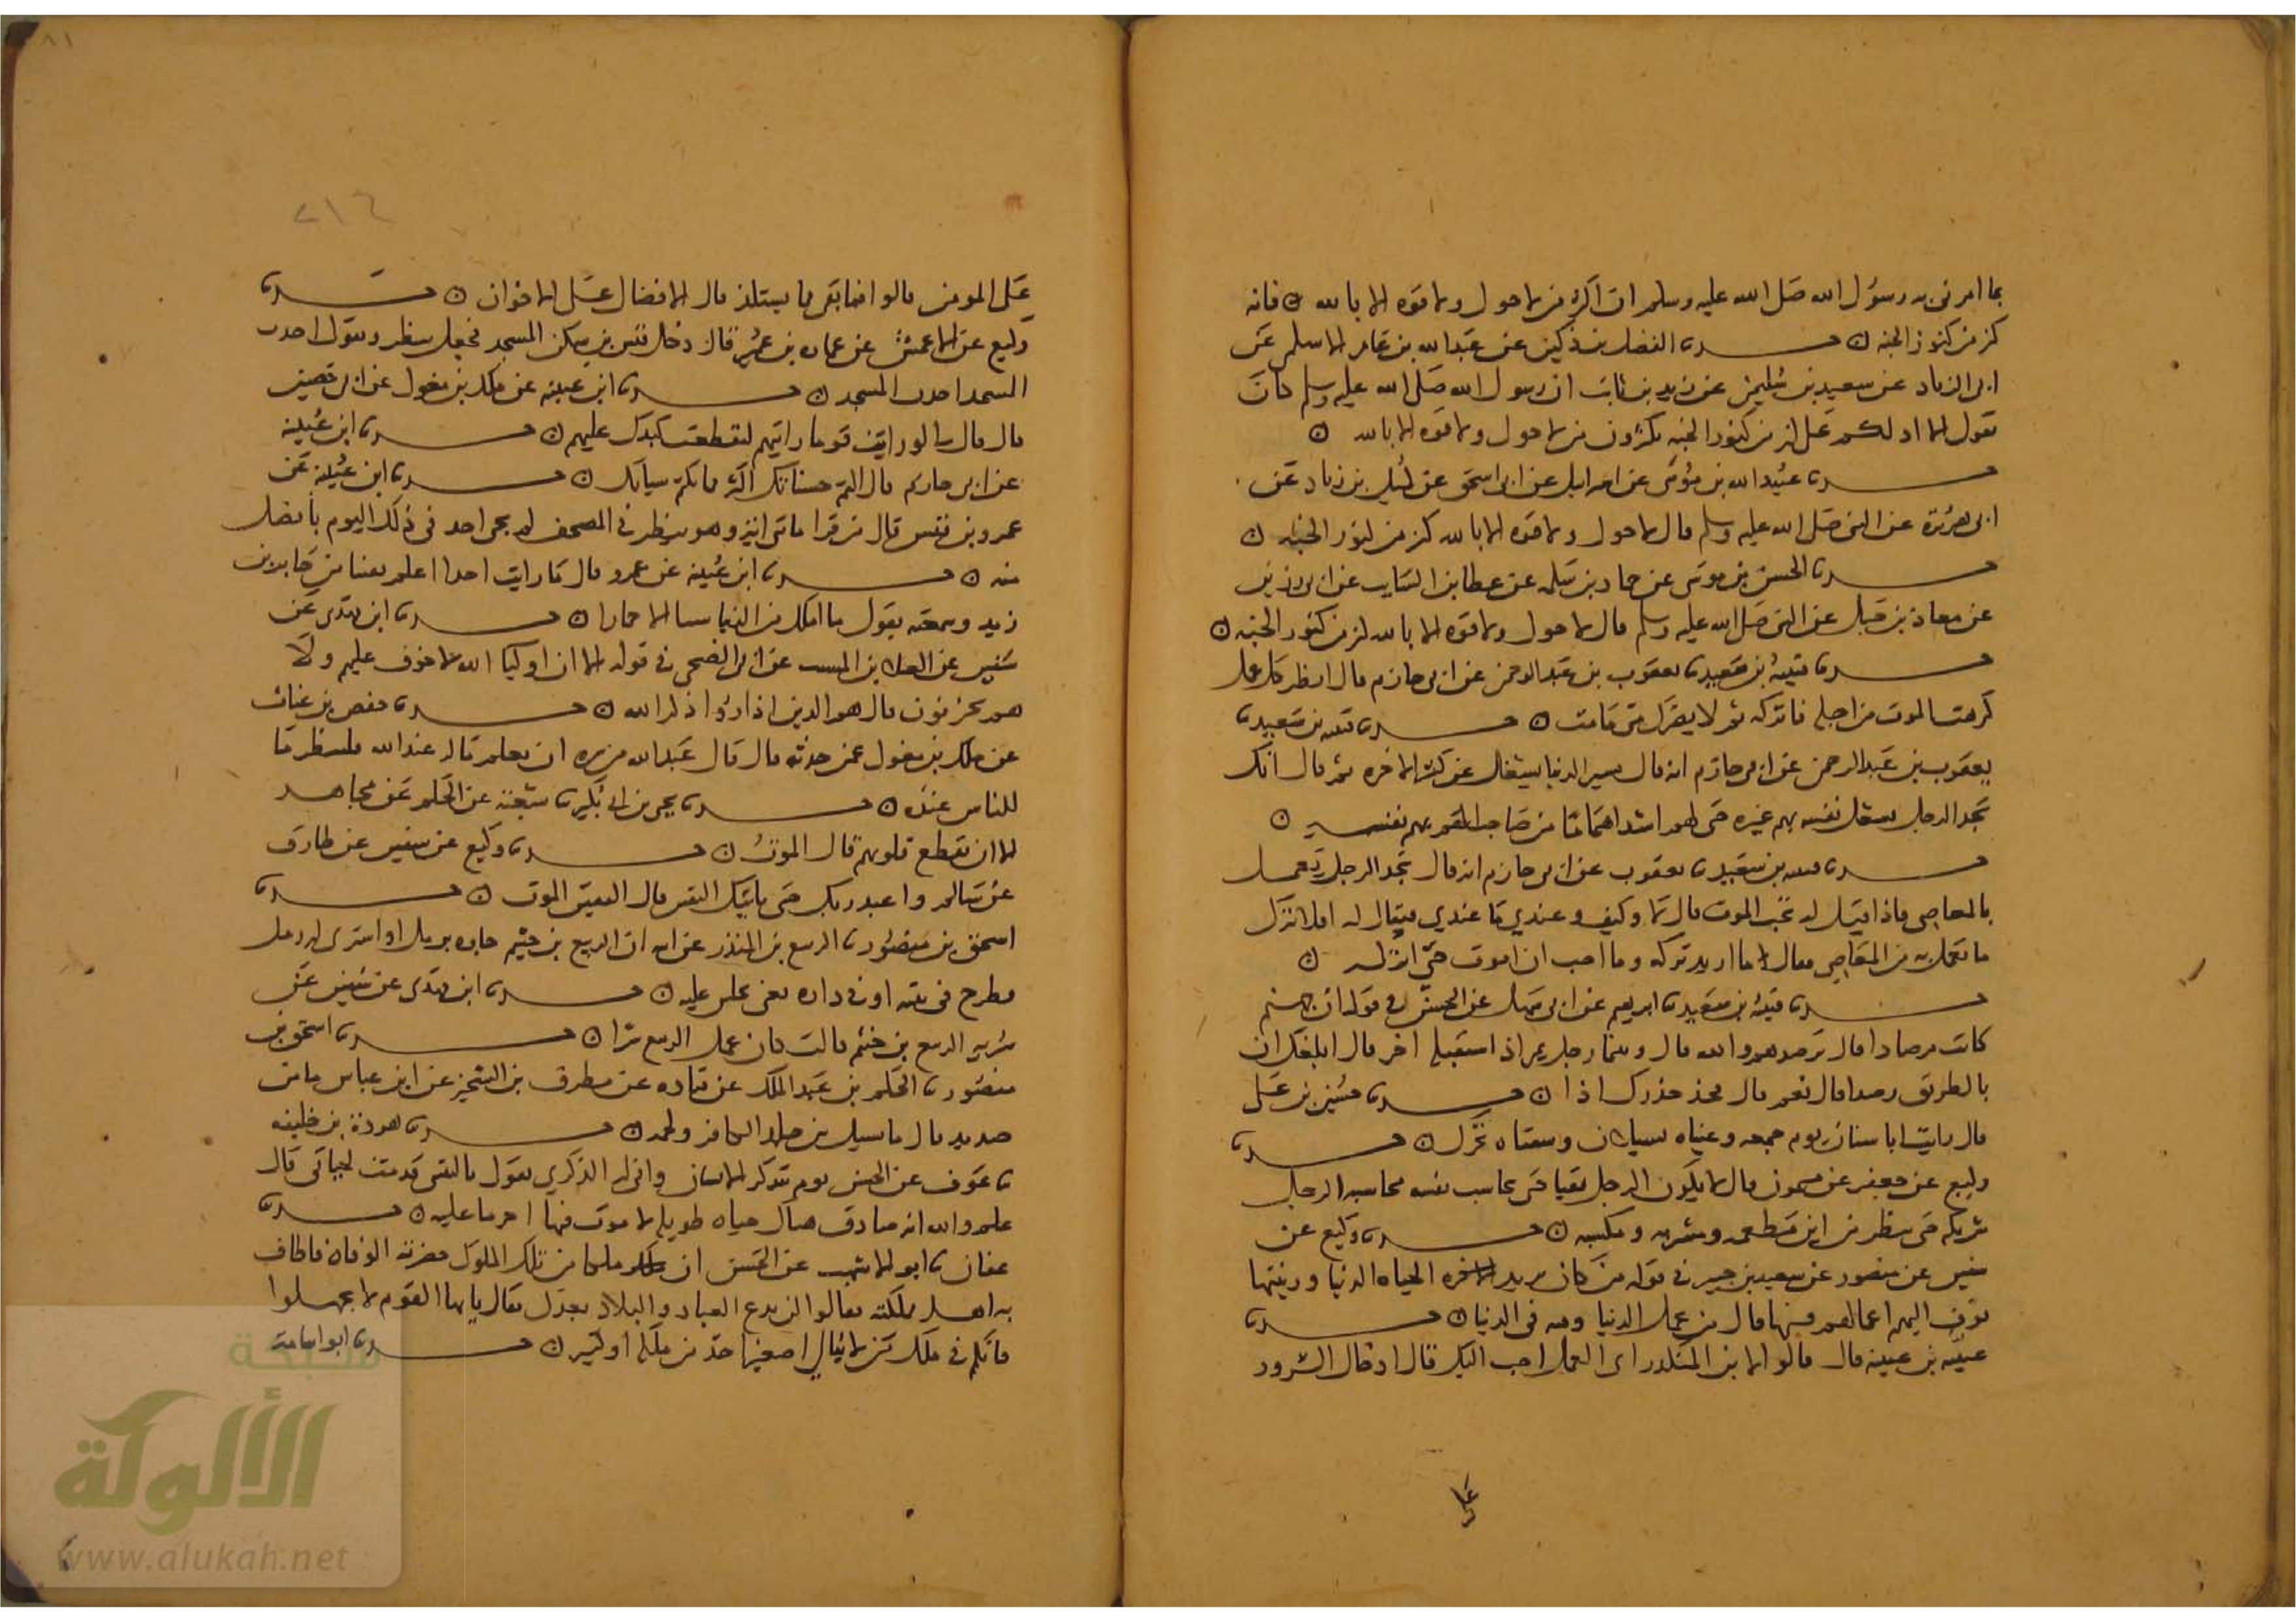 بما امرنى به رسول الله صلى الله عليه وسلم ان اكثر من لا حول ولا قوه الا بالله فانه
كنز من كنوز الجنه حدثنا الفضل بن دكين عن عبد الله بن عامر الاسلمى عن
ابى الزناد عن سعيد بن سليمن عن زيد بن ثابت ان رسول الله صلى الله عليه وسلم كان
يقول الا ادلكم على كنز من كنوز الجنه تكثرون من لا حول ولا قوه الا بالله
حدثنا عبيد الله بن موسى عن اسرائيل عن ابى اسحق عن كميل بن زياد عن
ابى هريرة عن النبى صلى الله عليه وسلم قال لا حول ولا قوه الا بالله كنز من كنوز الجنه
حدثنا الحسن بن موسى عن حماد بن سلمه عن عطا بن السايب عن ابى رزين
عن معاذ بن جبل عن النبى صلى الله عليه وسلم قال لا حول ولا قوه الا بالله كنز من كنوز الجنه
حدثنا قتيبة بن سعيد ثنا يعقوب بن عبد الرحمن عن ابى حازم قال انظر كل عمل
كرهت الموت من اجله فاتركه ثم لا يضرك متى مامت حدثنا قتيبه بن سعيد ثنا
يعقوب بن عبد الرحمن عن ابى حازم انه قال يسير الدنيا يشغل عن كثير الاخره ثم قال انك
تجد الرجل يشغل نفسه بهم غيره حتى لهو اشد اهتماما من صاحب الهم بهم نفسه
حدثنا قتيبه بن سعيد ثنا يعقوب عن ابى حازم انه قال تجد الرجل يعمل
بالمعاصى فاذا قيل له تحب الموت قال لا وكيف وعندي ما عندي فيقال له افلا تترك
ما تعمل به من المعاصى فقال ما اريد تركه وما احب ان اموت حتى اتركه
حدثنا قتيبة بن سعيد ثنا عن ابى سهل عن الحسن فى قوله ان جهنم
كانت مرصادا قال ترصدهم والله قال وبينما رجل يمر اذا استقبله اخر قال ابلغك ان
بالطريق رصدا قال نعم قال فخذ حذرك اذا حدثنا حسين بن على
قال رايت ابا سنان يوم جمعه وعيناه تسيلان وشفتاه تحرك حدثنا
وكيع عن جعفر عن ميمون قال لا يكون الرجل تقيا حتى يحاسب نفسه محاسبه الرجل
شريكه حتى ينظر من اين مطعمه ومشربه ومكسبه حدثنا وكيع عن
سفين عن منصور عن سعيد بن جبير فى قوله من كان يريد الحياه الدنيا وزينتها
نوف اليهم اعمالهم فيها قال من عمل الدنيا وفيه فى الدنيا حدثنا
عيينه قال قالوا لابن المنكدر اى العمل احب اليك قال ادخال السرور
على المومن قالوا فما بقى مما يستلذ قال الافضال على الاخوان حدثنا
وكيع عن الاعمش عن عماره بن عمير قال دخل قيس بن سكن المسجد فجعل ينظر ويقول اجدب
المسجد اجدب المسجد حدثنا ابن عيينه عن ملك بن مغول عن ابى حصين
قال قال لى لو رايت قوما رايتهم لتقطعت كبدك عليهم حدثنا ابن عيينه
عن ابى حازم قال اكتم حسناتك اكثر مما تكتم سياتك حدثنا ابن عيينه عن
عمرو بن قيس قال من قرا مائتى اية وهو ينظر فى المصحف لم يجى احد فى ذلك اليوم بافضل
منه حدثنا ابن عيينة عن عمرو قال ما رايت احدا اعلم بفتيا من جابر بن
زيد وسمعته يقول ما املك من الدنيا شيئا الا حمارا حدثنا ابن مهدى عن
سفين عن العلا بن المسيب عن ابى الضحى فى قوله الا ان اوليا الله لا خوف عليهم ولا
هم يحزنون قال هم الذين اذا رئوا ذكر الله حدثنا حفص بن غياث
عن ملك بن مغول عمن حدثه قال قال عبد الله من سره ان يعلم ماله عند الله فلينظر ما
للناس عنده حدثنا يحيى بن ابى بكير ثنا شعبة عن الحكم عن مجاهد
الا ان تقطع قلوبهم قال الموت حدثنا وكيع عن سفين عن طارق
عن سالم واعبد ربك حتى ياتيك اليقين قال اليقين الموت حدثنا
اسحق بن منصور ثنا الربيع بن المنذر عن ابيه ان الربيع بن خثيم جاوه برمل او اشترى له رمل
فطرح فى بيته او فى داره يعنى يجلس عليه حدثنا ابن مهدى عن سفين عن
سرية الربيع بن خثيم قالت كان عمل الربيع سرا حدثنا اسحق بن
منصور ثنا الحكم بن عبد الملك عن قتاده عن مطرف بن الشخير عن ابن عباس
صديد قال ما يسيل من جلد الكافر ولحمه حدثنا هوذة بن خليفه
ثنا عوف عن الحسن يوم يتذكر الانسان وانى له الذكرى يقول يا ليتنى قدمت لحياتى قال
علم والله انه صادف هنالك حياه طويله لا موت فيها اخر ما عليه حدثنا
عفان ثنا ابو الاشهب عن الحسن ان ملكا من تلك الملوك حضرته الوفاه فاطاف
به اهل مملكته فقالوا لمن تدع العباد والبلاد بعدك فقال يا ايها القوم لا تجهلوا
فانكم فى ملك من لا يبالى اصغيرا اخذ من ملكه او كبيرا حدثنا ابو اسامة
الألوكة
www.alukah.net